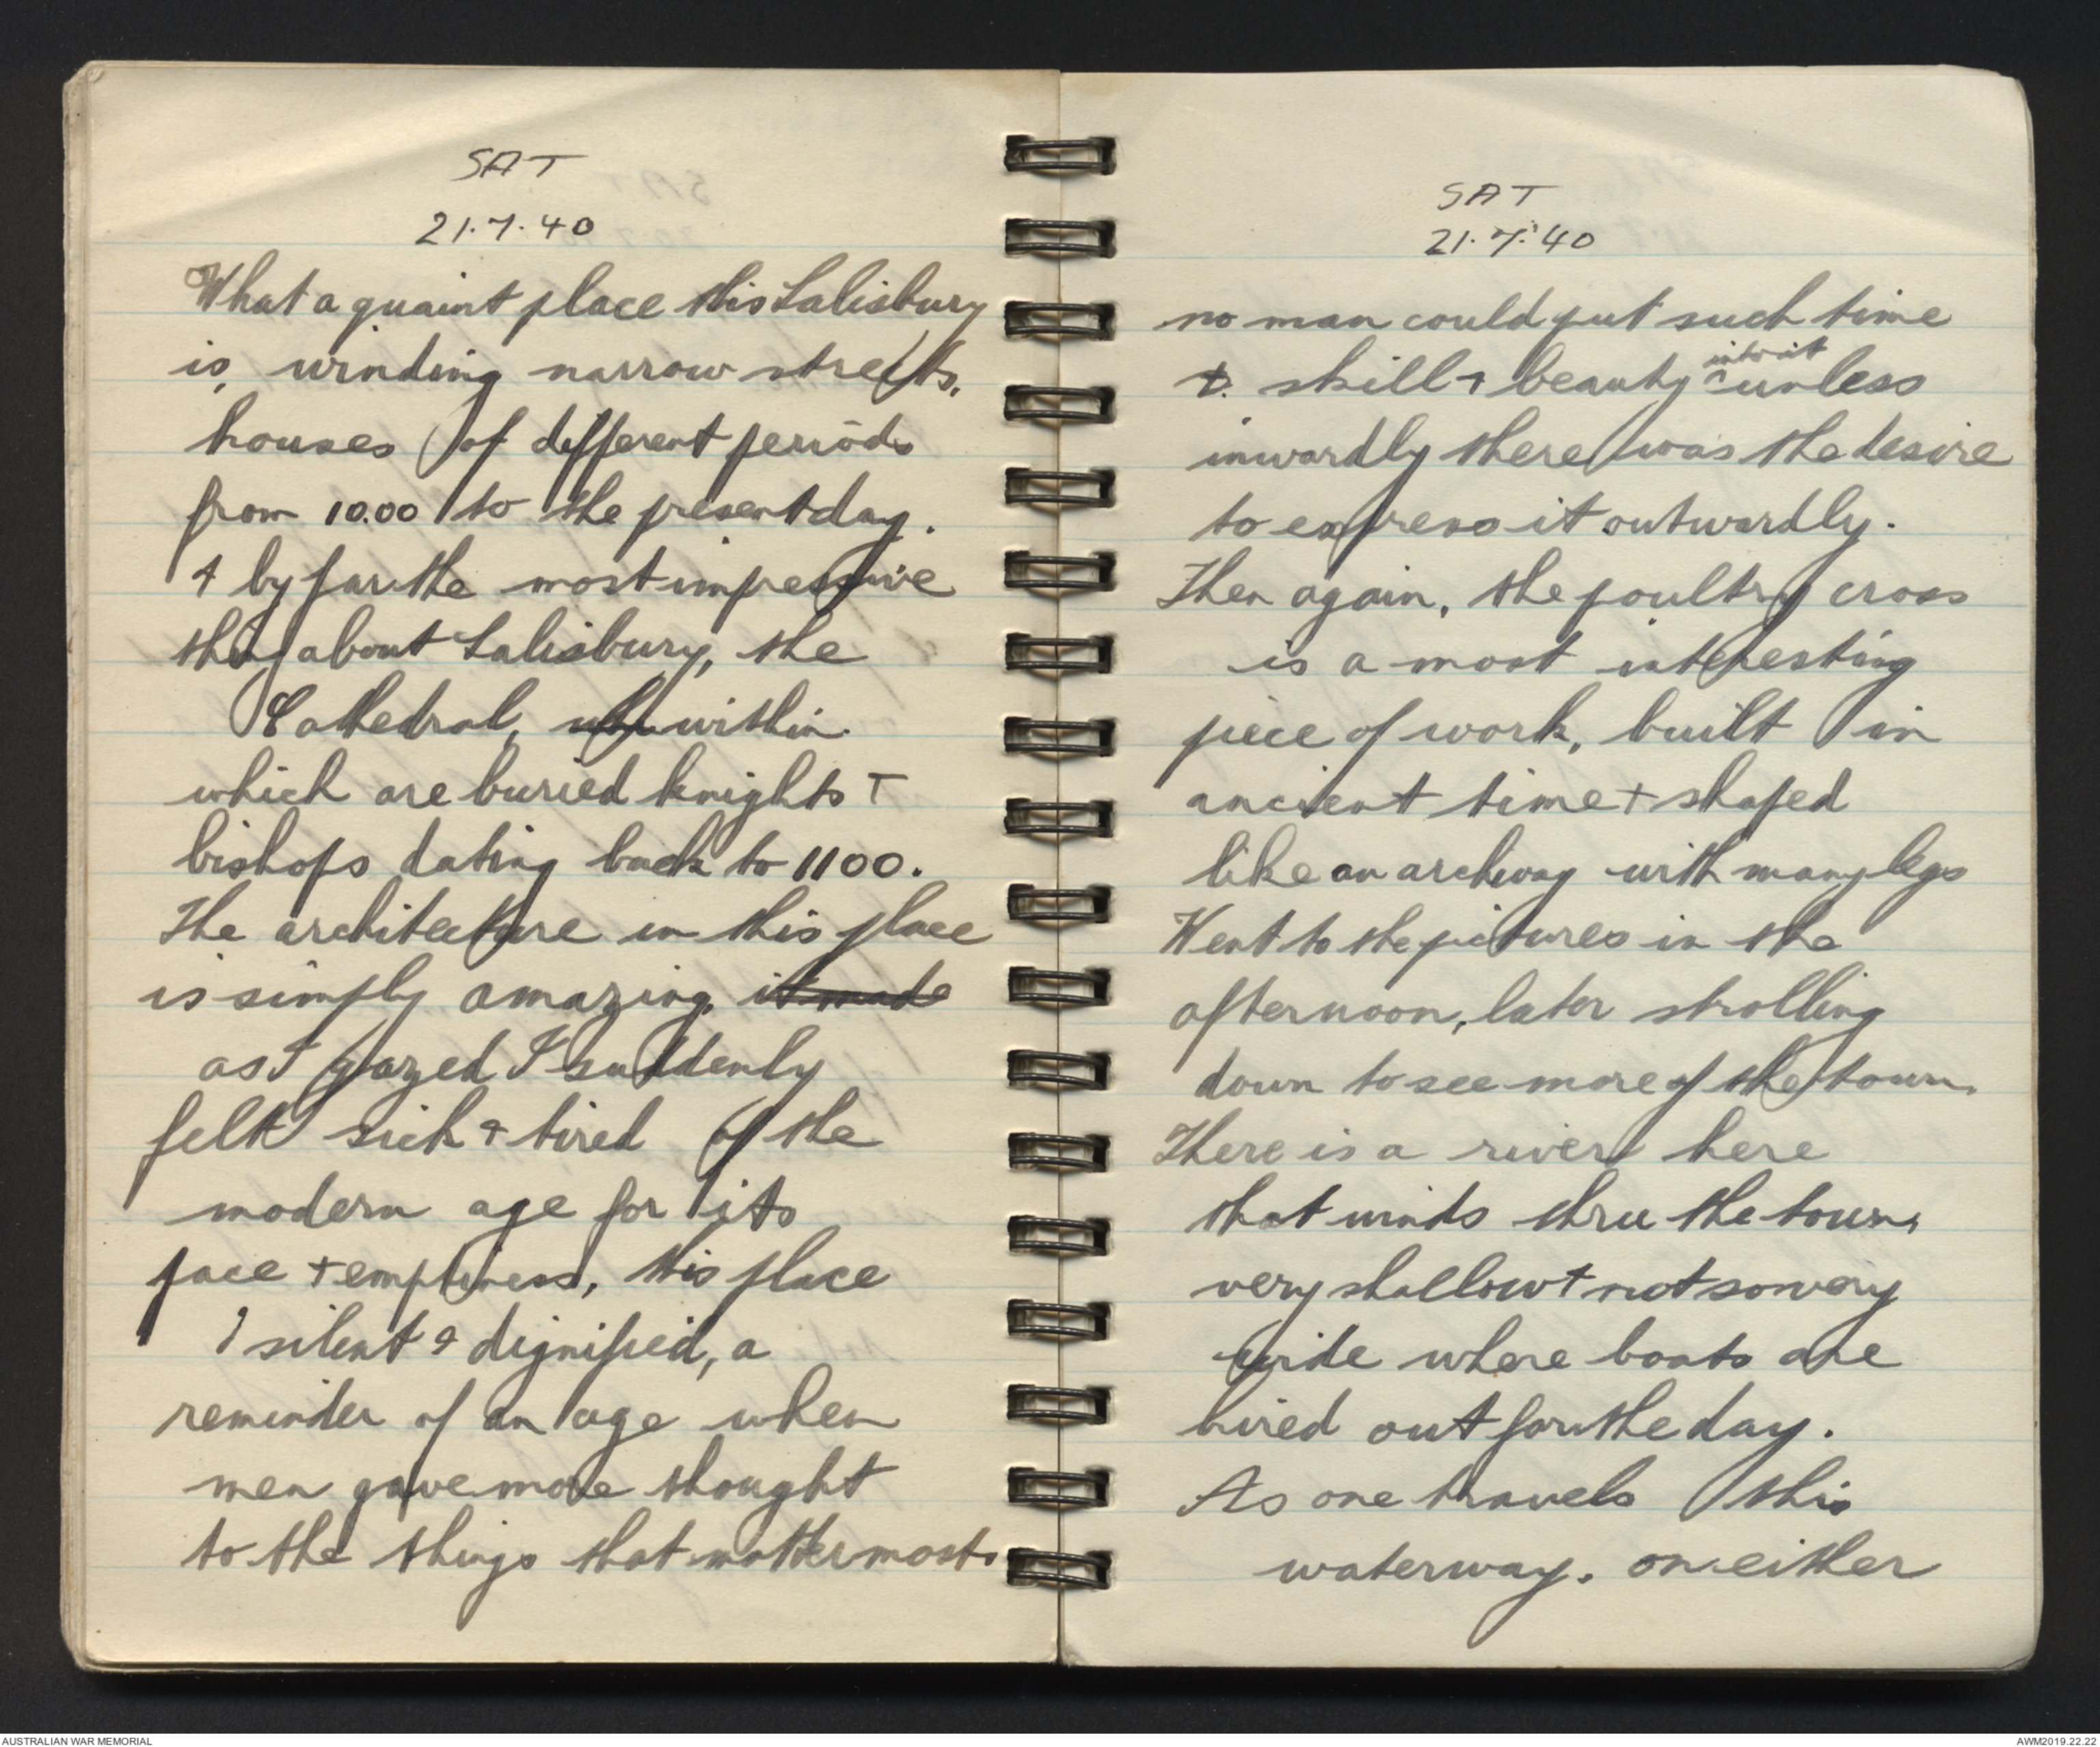 SAT
21.7.40
What a quaint place this Salisbury
is, winding narrow streets,
houses of different periods
from 10.00 to the present day.
+ by far the most impessive
thing about Salisbury, the
Cathedral, within
which are buried knights +
bishops dating back to 1100.
The architecture in this place
is simply amazing, it made
as I gazed I suddenly
felt sick & tired of the
modern age for its
pace + emptiness, this place
silent & dignified, a
reminder of an age when
men gave more thought
to the things that matter most.
SAT
21.7.40
no man could put such time
t. skill + beauty ^into it unless
inwardly there was the desire
to express it outwardly.
Then again, the poultry cross
is a most interesting
piece of work, built in
ancient time + shaped
like an archway with many legs
Went to the pictures in the
afternoon, later strolling
down to see more of the town.
There is a river here
that winds thru the town,
very shallow + not so very
wide where boats are
hired out for the day.
As one travels this
waterway. on either
AUSTRALIAN WAR MEMORIAL
AWM2019.22.22